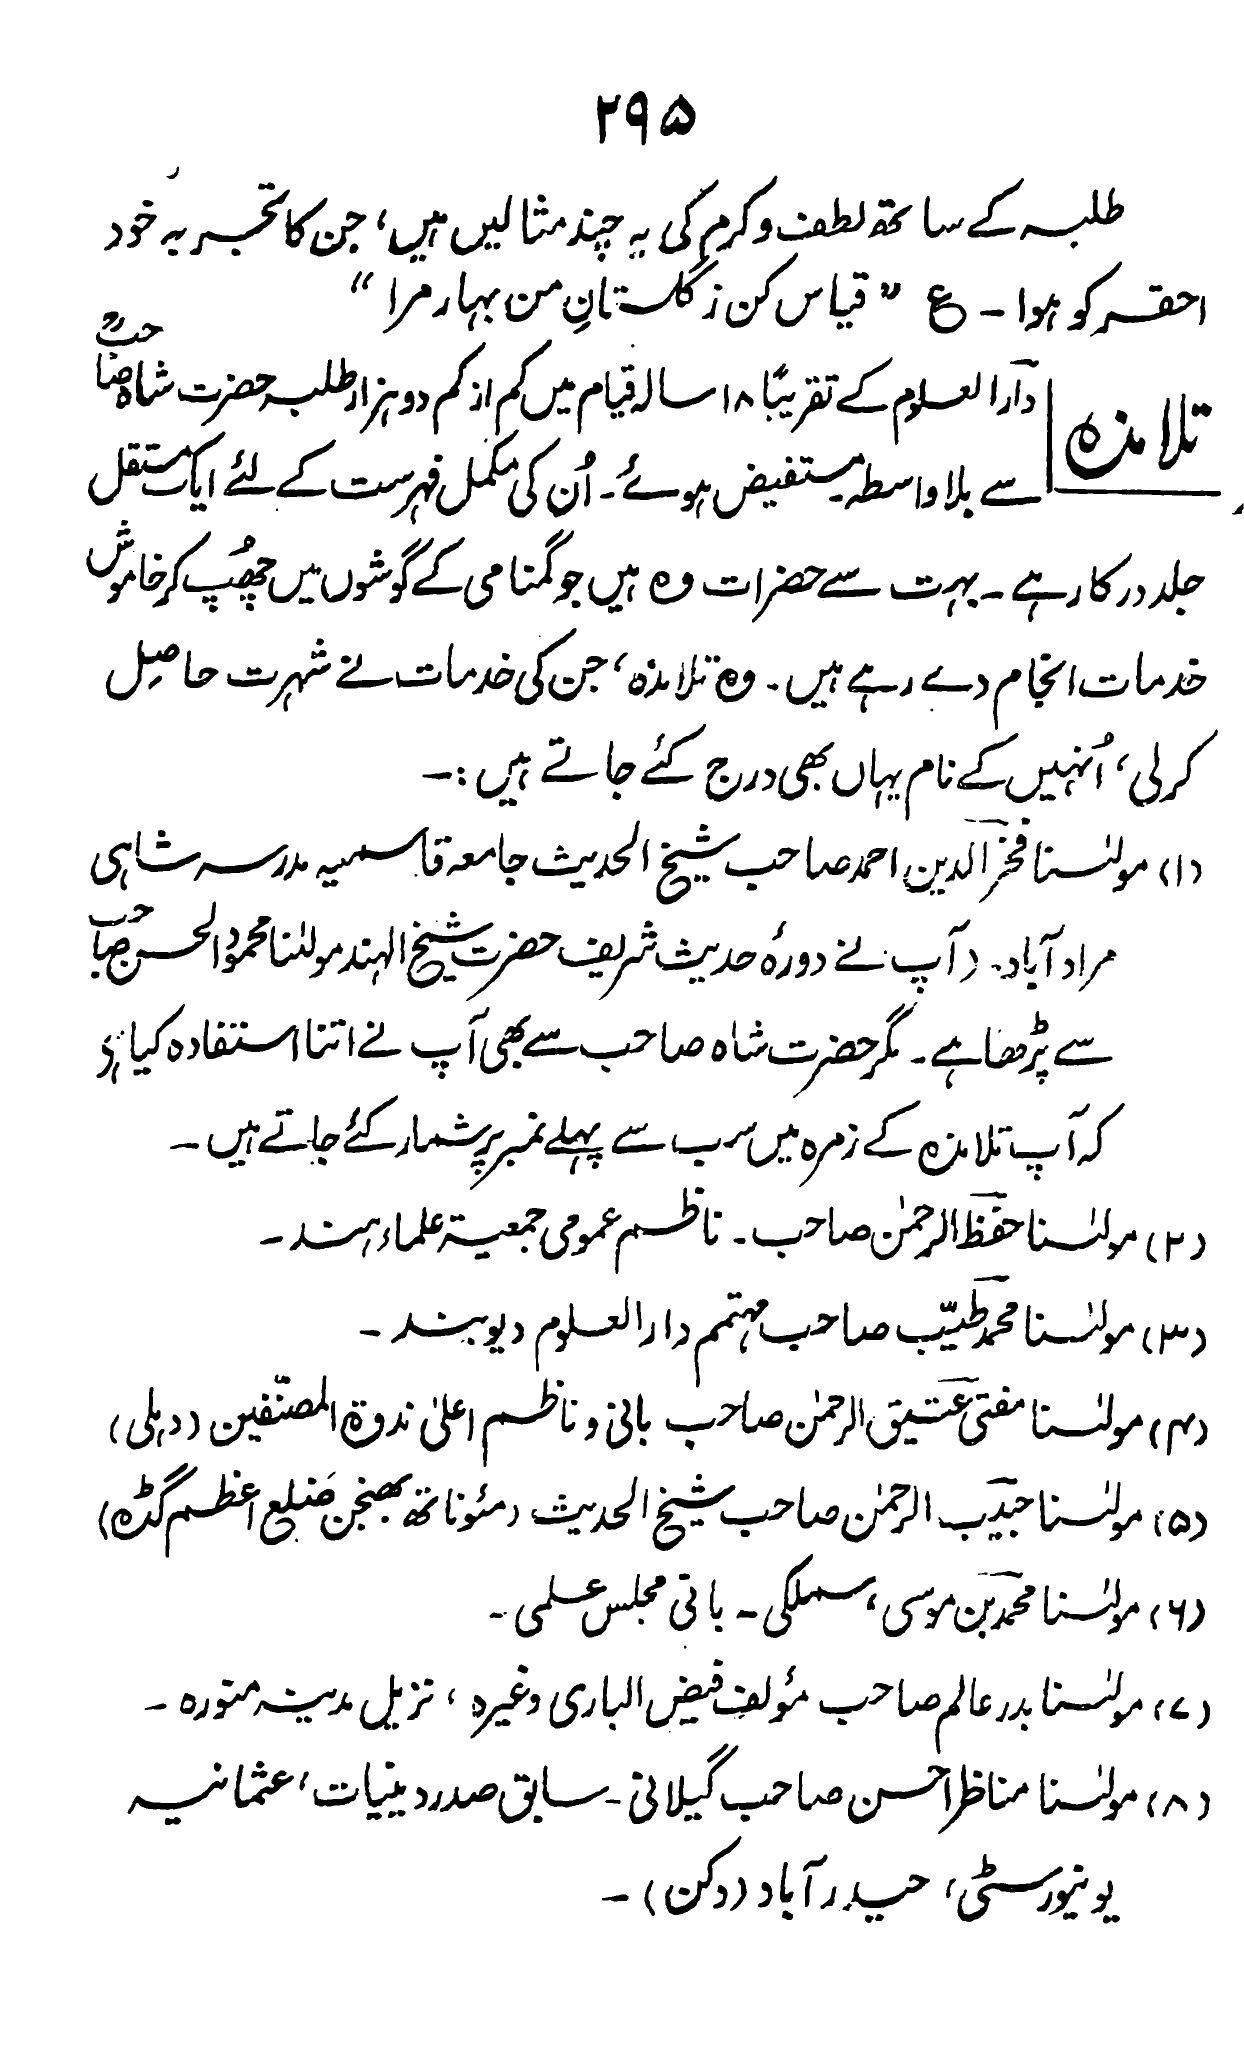 ۲۹۵
طلبہ کے ساتھ لطف و کرم کی یہ چند مثالیں ہیں، جن کا تجربہ خود
احقر کو ہوا ۔ ع " قیاس کن ز گلستانِ من بہار مرا "
تلامذہ
دارالعلوم کے تقریبًا ۱۸ سالہ قیام میں کم از کم دو ہزار طلبہ حضرت شاہ صاحبؒ
سے بلا واسطہ مستفیض ہوئے۔ اُن کی مکمل فہرست کے لئے ایک مستقل
جلد درکار ہے ۔ بہت سے حضرات وہ ہیں جو گمنامی کے گوشوں میں چھُپ کر خاموش
خدمات انجام دے رہے ہیں۔ وہ تلامذہ، جن کی خدمات نے شہرت حاصِل
کر لی، اُنہیں کے نام یہاں بھی درج کئے جاتے ہیں :۔
(۱) مولٰنا فخر الدین احمد صاحب شیخ الحدیث جامعہ قاسمیہ مدرسہ شاہی
مراد آباد۔ (آپ نے دورۂ حدیث شریف حضرت شیخ الہند مولٰنا محمود الحسن صاحب
سے پڑھا ہے ۔ مگر حضرت شاہ صاحب سے بھی آپ نے اتنا استفادہ کیا ہے
کہ آپ تلامذہ کے زمرہ میں سب سے پہلے نمبر پر شمار کئے جاتے ہیں ۔
(۲) مولٰنا حفظ الرحمٰن صاحب ۔ ناظم عمومی جمعیۃ علماء ہند ۔
(۳) مولٰنا محمد طیّب صاحب مہتمم دار العلوم دیوبند ۔
(۴) مولٰنا مفتی عتیق الرحمٰن صاحب بانی و ناظم اعلیٰ ندوۃ المصنّفین (دہلی)
(۵) مولٰنا حبیب الرحمٰن صاحب شیخ الحدیث (مئوناتھ بھنجن ضلع اعظم گڈہ)
(۶) مولٰنا محمد بن موسی، سملکی ۔ بانی مجلس علمی ۔
(۷) مولٰنا بدر عالم صاحب مؤلف فیض الباری وغیرہ ، نزیل مدینہ منورہ ۔
(۸) مولٰنا مناظر احسن صاحب گیلانی ۔ سابق صدر دینیات، عثمانیہ
یونیورسٹی، حیدر آباد (دکن) ۔